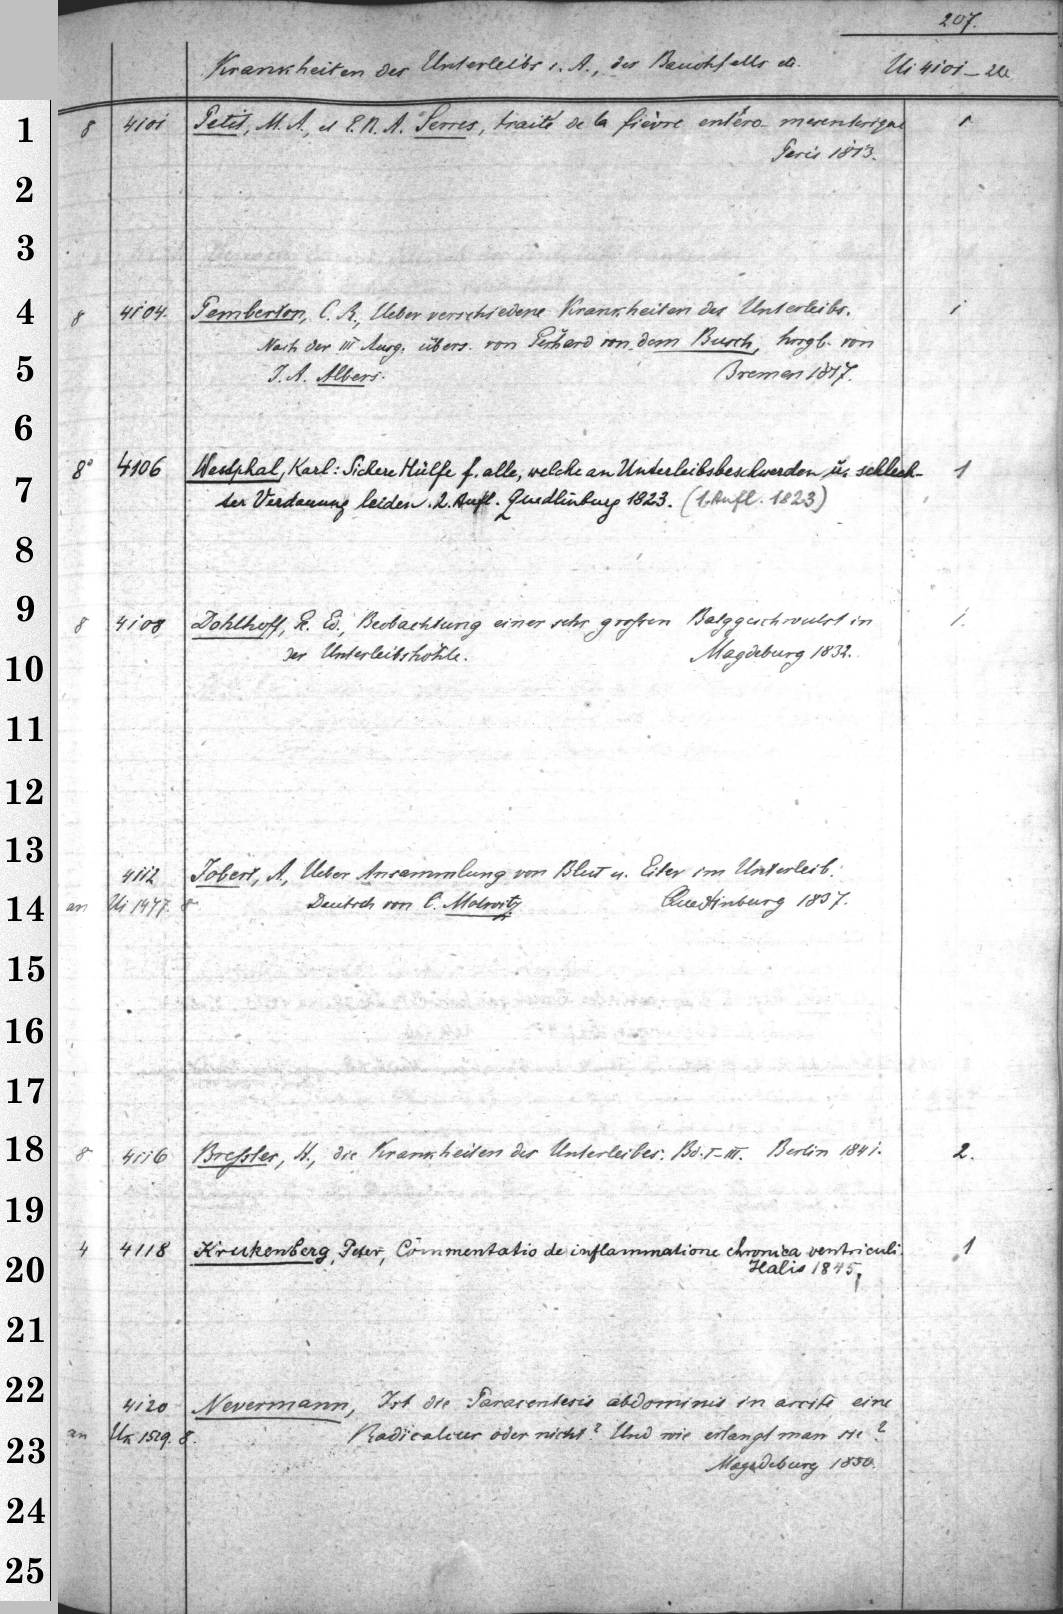 207.
Krankheiten des Unterleibs i. A., des Bauchfells etc. Ui 4101
1 8 4101 Petit, M. A., et E. R. A. Serres, traité de la fièvre entéro-mesenterique 1
Paris 1813.
2
3
4 8 4104. Pemberton, C. R., Ueber verschiedene Krankheiten des Unterleibs. 1
Nach der III Ausg. übers. von Gerhard von dem Busch, hrsgb. von
5 J. A. Albers. Bremen 1817.
6
7 8° 4106 Westphal, Karl: Sichere Hülfe f. alle, welche an Unterleibsbeschwerden u. schlech- 1
ter Verdauung leiden. 2. Aufl. Quedlinburg 1823. (1. Aufl. 1823)
8
9 8 4108 Dohlhoff, G. Ed., Beobachtung einer sehr großen Balggeschwulst in 1.
10 der Unterleibshöhle. Magdeburg 1832.
11
12
13 4112 Jobert, A., Ueber Ansammlung von Blut u. Eiter im Unterleib.
14 an Ui 1477. 8 Deutsch von C. Quedlinburg 1837.
15
16
17
18 8 4116 Breßler, H., die Krankheiten des Unterleibes. Bd. I-III. Berlin 1841. 2.
19
20 4 4118 Krukenberg, Peter, Commentatio de inflammatione chronica ventriculi. 1
Halis 1845.
21
22 4120 Nevermann, Ist die Paracentesis abdominis in ascite eine
23 an Uk 1529. 8. Radicalcur oder nicht? Und wie erlangt man sie?
Magdeburg 1830.
24
25